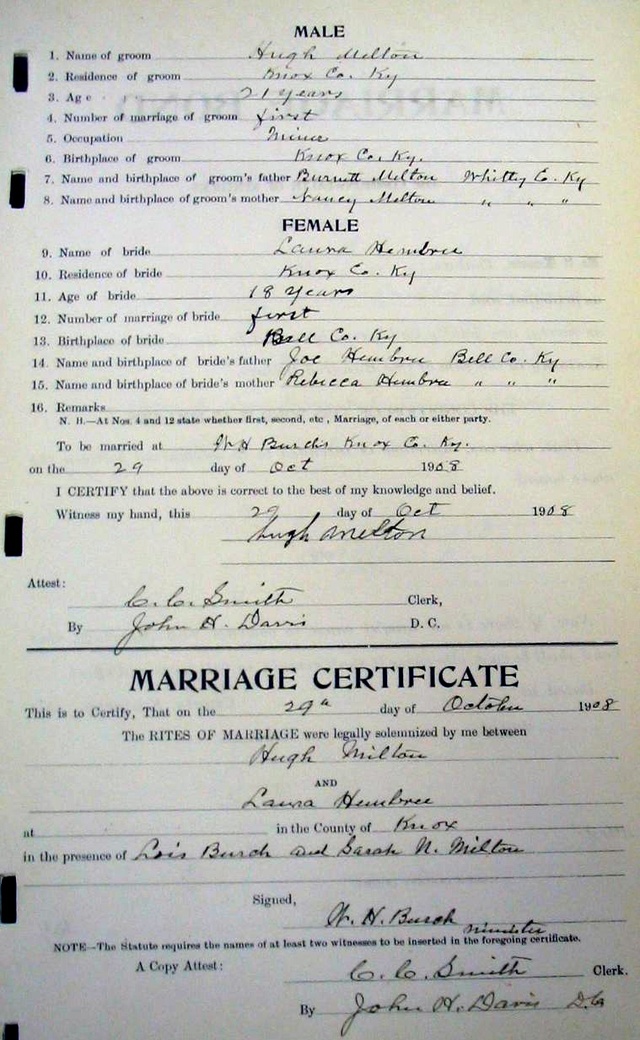 MALE
1. Name of groom Hugh Melton
2. Residence of groom Knox Co. Ky
3. Age 21 years
4. Number of marriage of groom first
5. Occupation Miner
6. Birthplace of groom Knox Co. Ky.
7. Name and birthplace of groom's father Burnett Melton Whitley Co. Ky
8. Name and birthplace of groom's mother Nancy Melton " " "
FEMALE
9. Name of bride Laura Hembree
10. Residence of bride Knox Co. Ky
11. Age of bride 18 years
12. Number of marriage of bride first
13. Birthplace of bride Bell Co. Ky
14. Name and birthplace of bride's father Joe Hembree Bell Co. Ky
15. Name and birthplace of bride's mother Rebecca Hembree " " "
16. Remarks
N. B.—At Nos. 4 and 12 state whether first, second, etc , Marriage, of each or either party.
To be married at W H Burchs Knox Co. Ky.
on the 29 day of Oct 1908
I CERTIFY that the above is correct to the best of my knowledge and belief.
Witness my hand, this 29 day of Oct 1908
Hugh Melton
Attest:
C. C. Smith Clerk,
By John H. Davis D. C.
MARRIAGE CERTIFICATE
This is to Certify, That on the 29th day of October 1908
The RITES OF MARRIAGE were legally solemnized by me between
Hugh Milton
AND
Laura Hembree
at in the County of Knox
in the presence of Lois Burch and Sarah N. Milton
Signed,
W. H. Burch minister
NOTE—The Statute requires the names of at least two witnesses to be inserted in the foregoing certificate.
A Copy Attest: C. C. Smith Clerk.
By John H. Davis D.C.